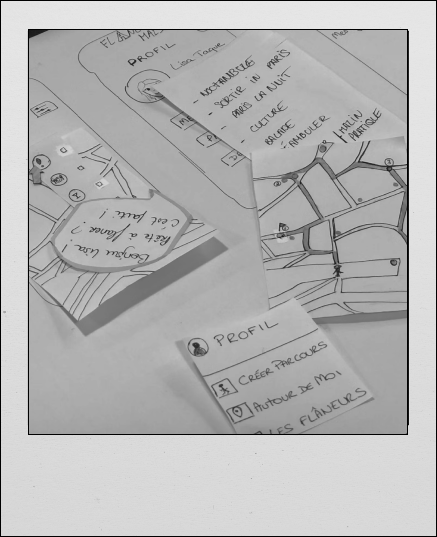 FLÂN
MAL
PROFIL
Lisa Taque
- NOCTAMBULE
- SORTIR IN PARIS
- PARIS LA NUIT
- CULTURE
BALADE
- AMBULER
MALIN
PRATIQUE
Bonjour Lisa !
Prête à flâner ?
C'est parti !
PROFIL
CRÉER PARCOURS
AUTOUR DE MOI
LES FLÂNEURS